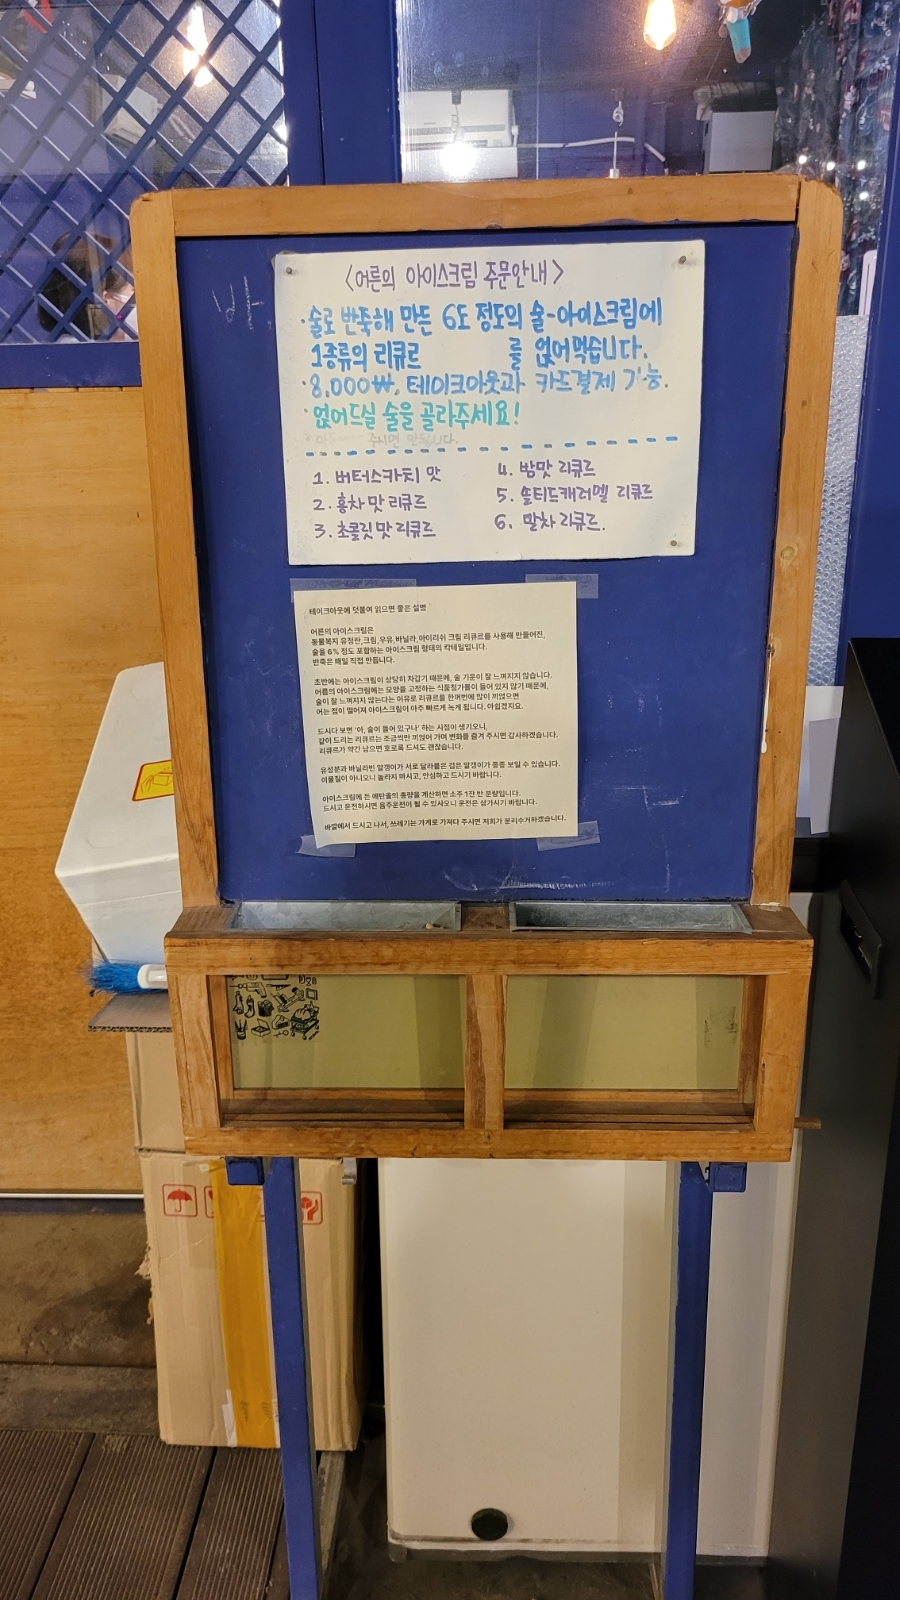 <어른의 아이스크림 주문안내>
·술로 반죽해 만든 6도 정도의 술-아이스크림에
1종류의 리큐르 를 얹어먹습니다.
·8,000₩, 테이크아웃과 카드결제 가능.
·얹어드실 술을 골라주세요!
주시면 안됩니다.
1. 버터스카치 맛
2. 홍차맛 리큐르
3. 초콜릿맛 리큐르
4. 밤맛 리큐르
5. 솔티드캐러멜 리큐르
6. 말차 리큐르.
테이크아웃에 덧붙여 읽으면 좋은 설명
어른의 아이스크림은
동물복지 유정란,크림,우유,바닐라,아이리쉬 크림 리큐르를 사용해 만들어진,
술을 6% 정도 포함하는 아이스크림 형태의 칵테일입니다.
반죽은 매일 직접 만듭니다.
초반에는 아이스크림이 상당히 차갑기 때문에, 술 기운이 잘 느껴지지 않습니다.
어른의 아이스크림에는 모양을 고정하는 식품첨가물이 들어 있지 않기 때문에,
술이 잘 느껴지지 않는다는 이유로 리큐르를 한꺼번에 많이 끼얹으면
어는 점이 떨어져 아이스크림이 아주 빠르게 녹게 됩니다. 아쉽겠지요.
드시다 보면 '아, 술이 들어 있구나' 하는 시점이 생기오니,
같이 드리는 리큐르는 조금씩만 끼얹어 가며 변화를 즐겨 주시면 감사하겠습니다.
리큐르가 약간 남으면 호로록 드셔도 괜찮습니다.
유성분과 바닐라빈 알갱이가 서로 달라붙은 검은 알갱이가 종종 보일 수 있습니다.
이물질이 아니오니 놀라지 마시고, 안심하고 드시기 바랍니다.
아이스크림에 든 에탄올의 총량을 계산하면 소주 1잔 반 분량입니다.
드시고 운전하시면 음주운전이 될 수 있사오니 운전은 삼가시기 바랍니다.
바깥에서 드시고 나서, 쓰레기는 가게로 가져다 주시면 저희가 분리수거하겠습니다.